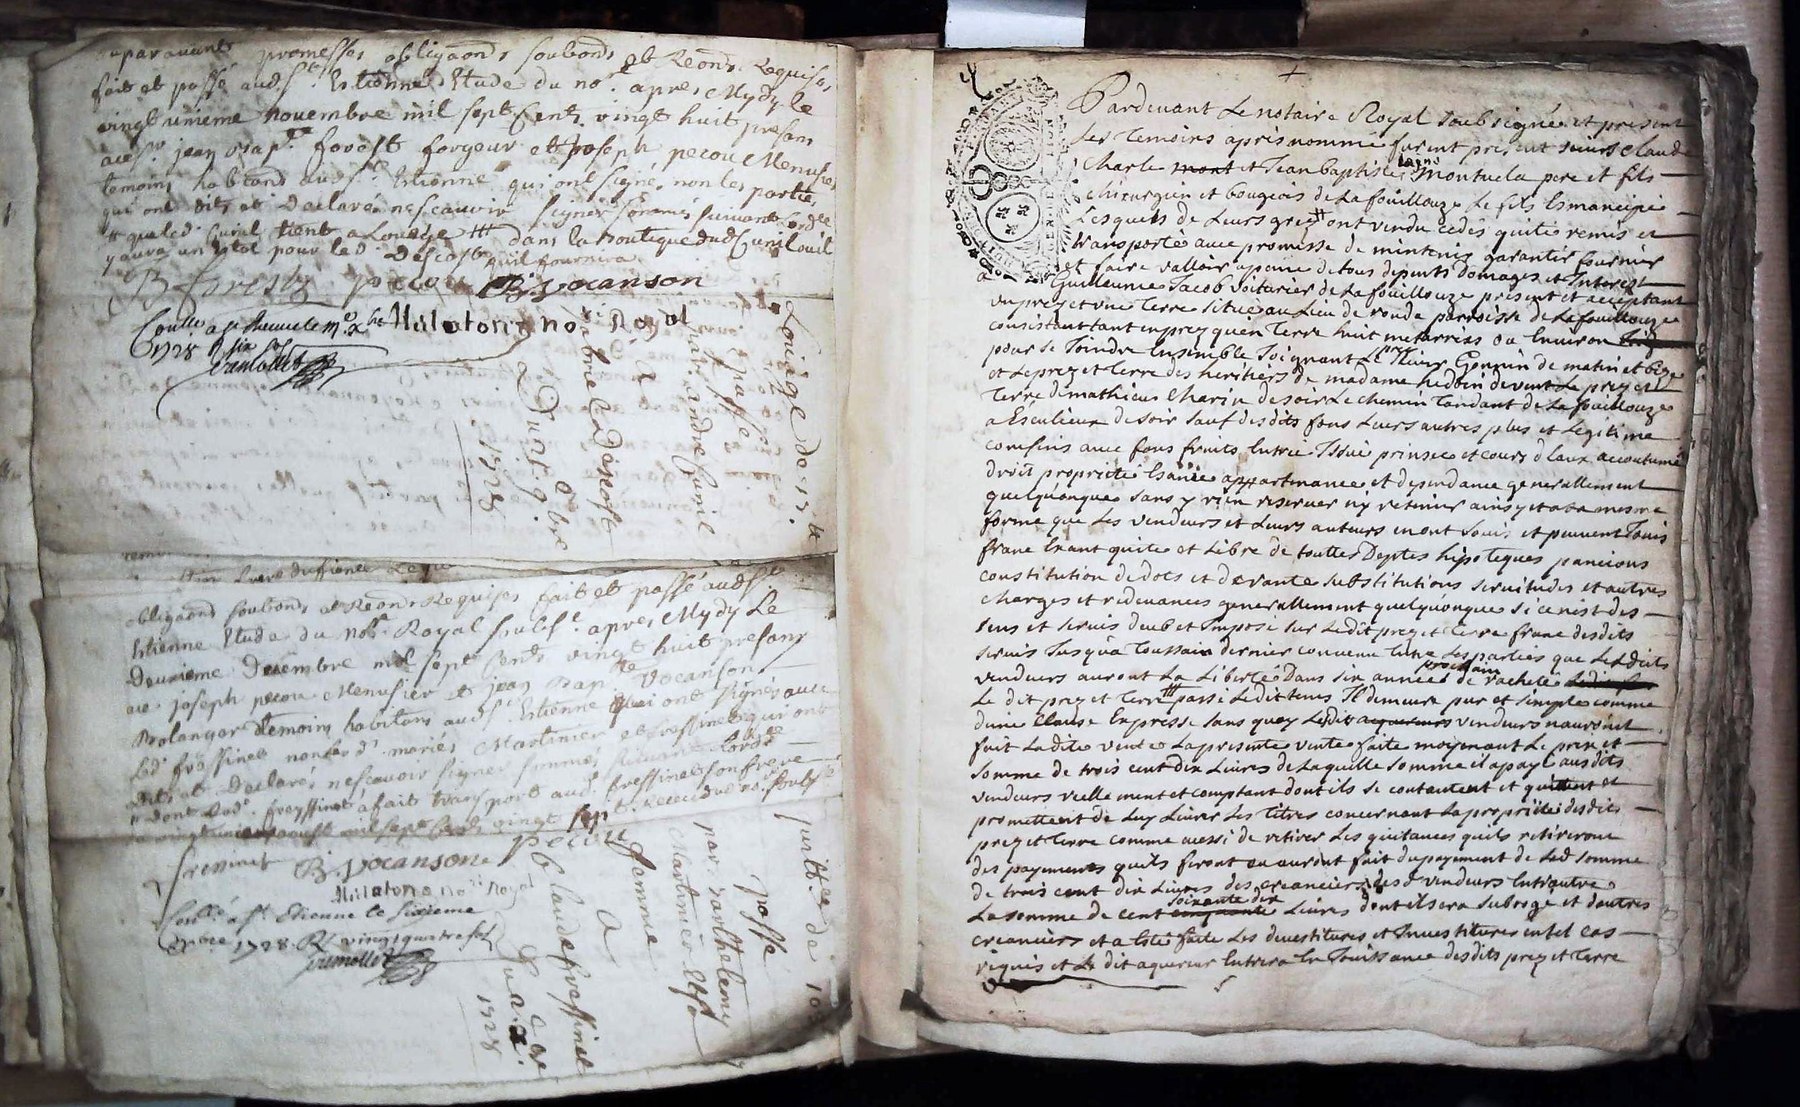 auparavant promesses obligaons soubons et Reons Requises
fait et passé aud. St. Estienne Etude du nore. apres Mydy le
vingt unieme novembre mil sept Cents vingt huit presans
jean Bap.te forest forgeur et Joseph pecou Menusier
temoins habitans aud St. Estienne qui ont signé, non les parties
qui ont dits et Declaré ne scauoir signer sommés suivant lord.ce
dans la boutique dud Cunil
y aura un pour led. Descoste quil fournira
B forestz pecou B: Vocanson
1728 R six sols
Nalaton no.re Royal
Louage de 13 #
passé
par andré Cunil
a
gabriel Descoste
Du 21. 9.bre
1728
obligaons soubons et Reons Requises fait et passé aud St.
Estienne Etude du nore. Royal soubs.é apres Mydy Le
Deuxieme Decembre mil sept Cents vingt huit presans
joseph pecou Menusier et jean Bap.te Vocanson
Bolanger temoins habitans aud St. Estienne qui ont signés avec
Led. frossinet non les d. mariés Martinier et frossinet qui ont
dits et Declaré ne scauoir signer sommés suivant lord.ce
dont led. freyssinet a fait transport aud. freyssinet son frere
mil sept Cents vingt sep
fressinet B: Vocanson pecou
Nalaton no.re Royal
a St. Etienne le sixieme
1728. R vingt quatre sols
quitt.ce de
passé
par barthelemy
Martinier et sa
femme
a
Claude fressinet
1728
Pardevant Le notaire Royal soubsigné et present
Les temoins apres nommé furent present sieurs Claude
Charle mont et Jean baptiste Montuela pere et fils
chirurgien et bougeois de La fouillouze Le fils Emancipé
Lesquels de Leurs grez ont vendu cedés quité remis et
transporté avec promesse de mintenir garantir fournir
et faire valloir a peine de tous depents domages et Interest
a Guilleaume Jacob voiturier de La fouillouze present et acceptant
un prez et une Terre situé au Lieu de vonde parroisse de La fouillouze
consistant tant en prez qu'en Terre huit metarries ou Environ
pour se Joindre Ensemble Joignant Le prez sieur Gonnin de matin et bize
et Le prez et Terre des heritiers de madame hedoin de vent Le prez et
Terre de mathieu Charin de soir Le chemin Tandant de La fouillouze
a Esculieux de soir sauf desdits fons Leurs autres plus et Legitime
comfins avec fons fruits Entrée Issue prinsee et cours d'Eaux accoutumé
droit proprieté Esance appartenance et dependance generallement
quelquonque sans y rien reserver ny retenir ains y et a la mesme
forme que Les vendeurs et Leurs auteurs en ont Jouis et peuvent Jouis
franc Exant quite et Libre de touttes Deptes hipoteques pancions
constitution de dots et de vante substitutions servitudes et autres
charges et redevances generallement quelquonque si ce n'est des
sens et servis deub et Imposé sur Ledit prez et Terre franc desdits
servis Jusqu'a Toussain dernier convenu Entre Les parties que Lesdits
vendeurs auront La Liberté Dans six années prochain de racheté
Le dit prez et Terre passé Ledit tems Il demeure pur et simple comme
d'une Clause Expresse sans quoy Ledit aquereurs vendeurs n'auroint
fait La dite vente La presente vente faite moyenant Le prix et
somme de trois cent dix Livres de Laquelle somme il a payé ausdits
vendeurs reellement et comptant dont ils se contantent et quittent et
promettent de Luy Livrer Les titres concernant La proprieté desdits
prez et Terre comme aussi de retirer Les quitances quils retireront
des payements quils feront ou auront fait du payement de Led somme
de trois cent dix Livres des creanciers desd vendeurs Entrautre
La somme de cent cinquante soixante dix Livres dont il sera subrogé et dautres
creanciers et a Esté faite Les devestitures et Investitures en tel cas
requis et Le dit aquereur Entrera En Jouissance desdits prez et Terre